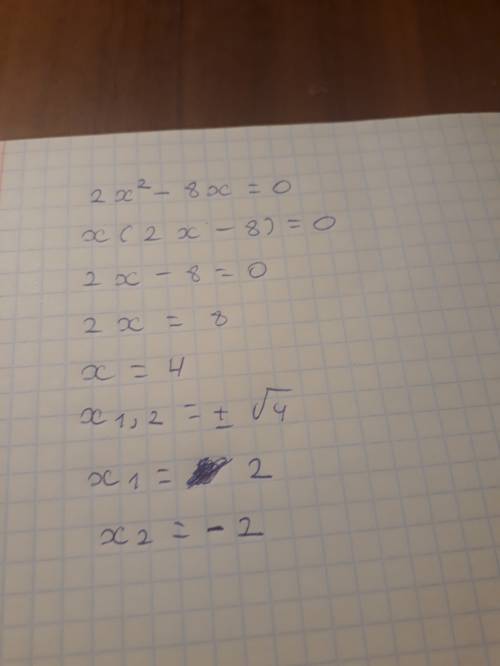 2x² - 8x = 0
x(2x - 8) = 0
2x - 8 = 0
2x = 8
x = 4
x1,2 = ± √4
x1 = 2
x2 = -2